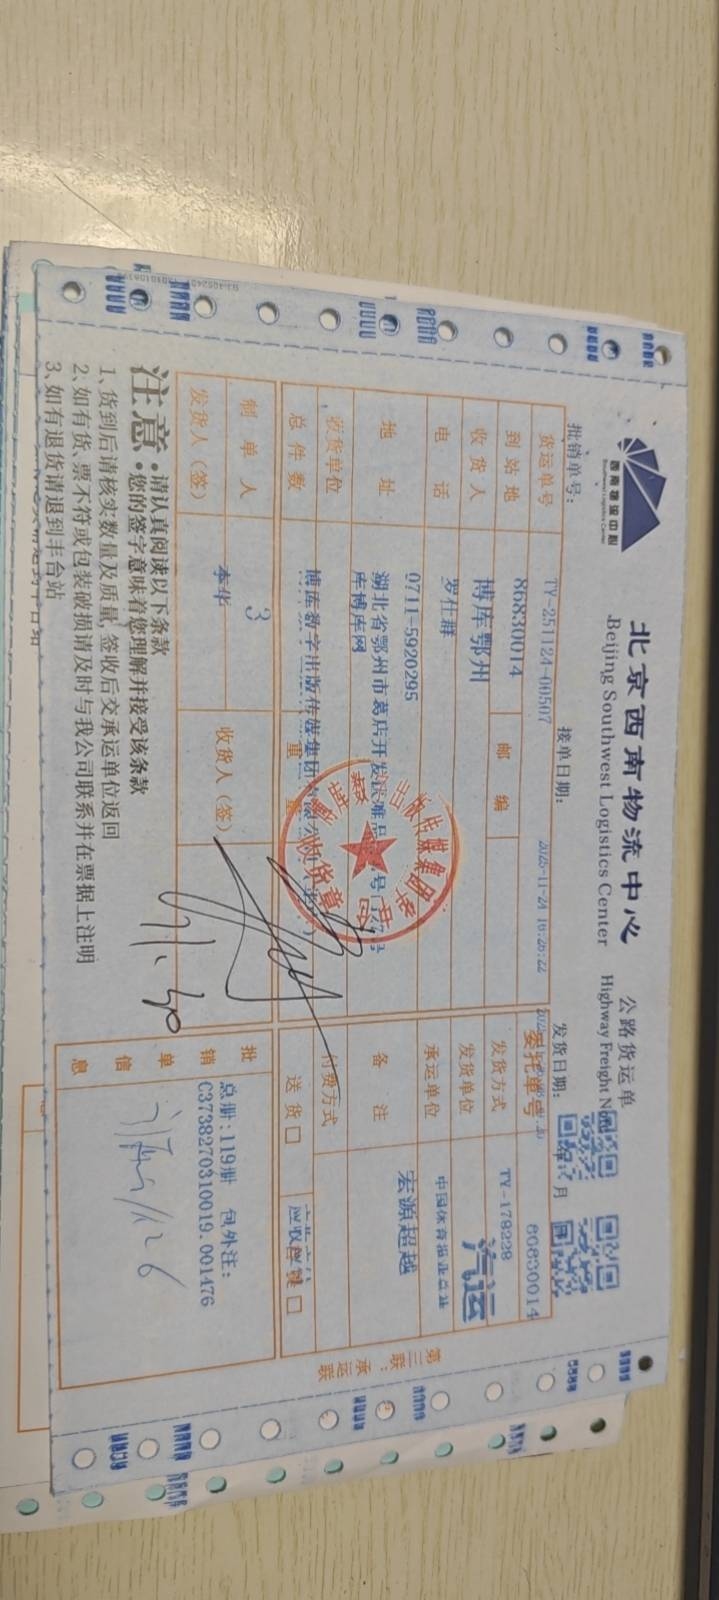 西南物流中心
Southwest Logistics Center
北京西南物流中心
Beijing Southwest Logistics Center
公路货运单
Highway Freight
批销单号：
接单日期：
2025-11-24 16:26:22
发货日期：
月
货运单号
TY-251124-00507
委托单号
86830014
到站地
86830014
邮编
发货方式
TY-179228
汽运
收货人
博库鄂州
发货单位
中国体育报业总社
电话
罗仕群
承运单位
宏源超越
0711-5920295
地址
湖北省鄂州市葛店开发区
库博库网
备注
收货单位
博库数字出版传媒集团有限公司
付费方式
总件数
3
重量
送货□
制单人
本华
收货人（签）
发货人（签）
11.30
批销单信息
总册:119册 包外注:
C3738270310019.001476
第三联：承运联
出版传媒集团
收货章
注意
•请认真阅读以下条款
•您的签字意味着您理解并接受该条款
1、货到后请核实数量及质量，签收后交承运单位返回
2、如有货、票不符或包装破损请及时与我公司联系并在票据上注明
3、如有退货请退到丰台站